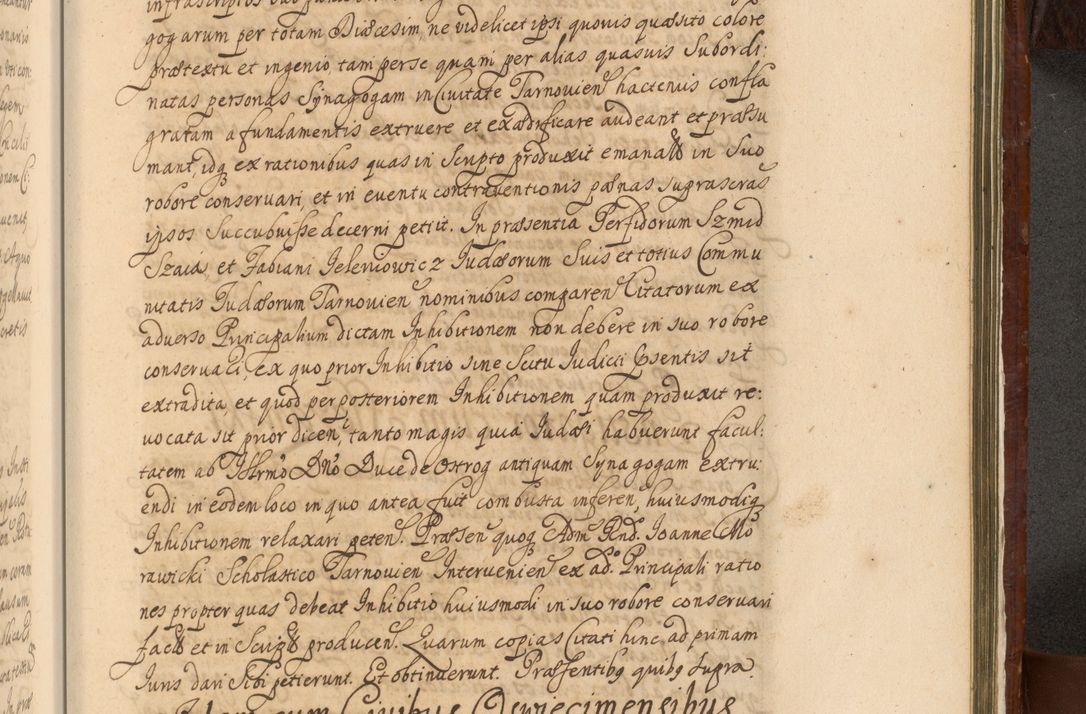 infrascriptos
gogarum per totam Diæcesim ne videlicet ipsi quovis quæsito colore
prætextu et ingenio, tam per se quam per alias quasuis Subordi:
natas personas Synagogam in Civitate Tarnovien hactenus confla
gratam a fundamentis extruere et exædificare audeant et præsu
mant, idq ex rationibus quas in Scripto produxit emanatt in Suo
robore conservari, et in eventu contraventionis pænas suprascras
ipsos Succubuisse decerni petiit. In præsentia Perfidorum Szmid
Szaia, et Fabiani Jeleniowicz Iudæorum Suis et totius Commu
nitatis Iudæorum Tarnovien nominibus comparen Citatorum ex
adverso Principalium dictam Inhibitionem non debere in suo robore
conservari, ex quo prior Inhibitio sine Scitu Iudicii Psentis sit
extradita, et quod per posteriorem Inhibitionem quam produxit re:
vocata sit prior dicen, tanto magis quia Iudæi habuerunt facul:
tatem ab Illrmo Dno Duce de Ostrog antiquam Synagogam extru:
endi in eodem loco in quo antea fuit combusta inferen, huiusmodiq
Inhibitionem relaxari peten. Præsen quoq Adm Rnd. Ioanne Mo
rawicki Scholastico Tarnovien Intervenien ex ad. Principali ratio
nes propter quas debeat Inhibitio huiusmodi in suo robore conservari
factt et in Scriptt producen. Quarum copias Citati hinc ad primam
Iuris dari Sibi petierunt. Et obtinuerunt. Præsentibq quibq supra.
cum Civibus Oswiecimensibus